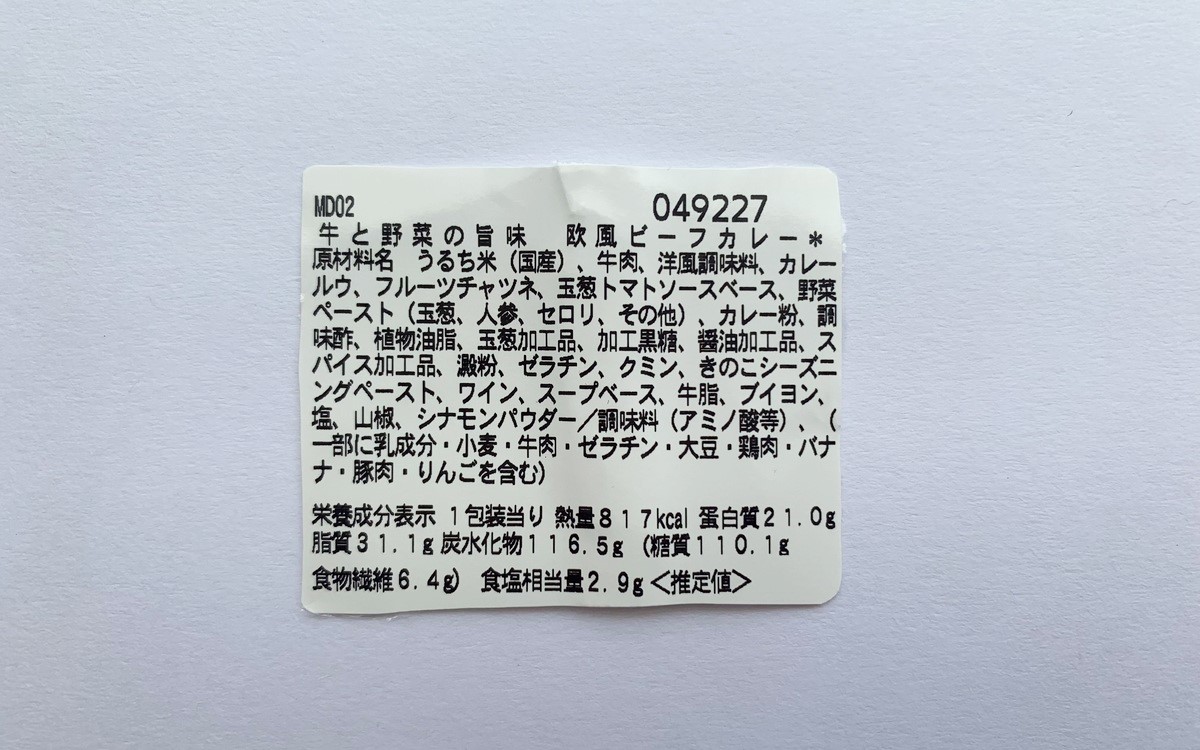 MD02 049227
牛と野菜の旨味 欧風ビーフカレー*
原材料名 うるち米(国産)、牛肉、洋風調味料、カレー
ルウ、フルーツチャツネ、玉葱トマトソースベース、野菜
ペースト(玉葱、人参、セロリ、その他)、カレー粉、調
味酢、植物油脂、玉葱加工品、加工黒糖、醤油加工品、ス
パイス加工品、澱粉、ゼラチン、クミン、きのこシーズニ
ングペースト、ワイン、スープベース、牛脂、ブイヨン、
塩、山椒、シナモンパウダー/調味料(アミノ酸等)、(
一部に乳成分・小麦・牛肉・ゼラチン・大豆・鶏肉・バナ
ナ・豚肉・りんごを含む)
栄養成分表示 1包装当り 熱量817kcal 蛋白質21.0g
脂質31.1g 炭水化物116.5g (糖質110.1g
食物繊維6.4g) 食塩相当量2.9g<推定値>